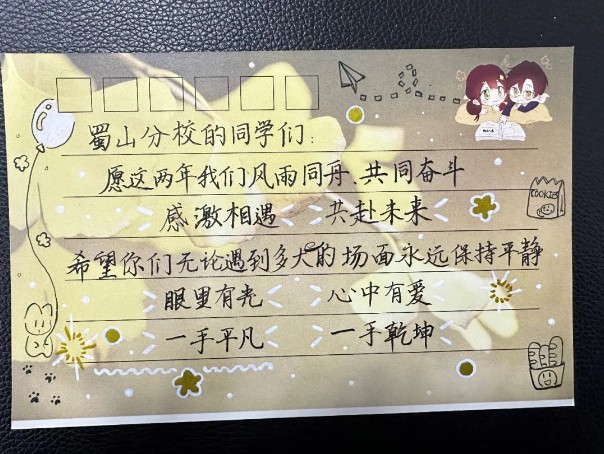 蜀山分校的同学们:
愿这两年我们风雨同舟、共同奋斗
感激相遇 共赴未来
希望你们无论遇到多大的场面永远保持平静
眼里有光 心中有爱
一手平凡 一手乾坤
COOKIES